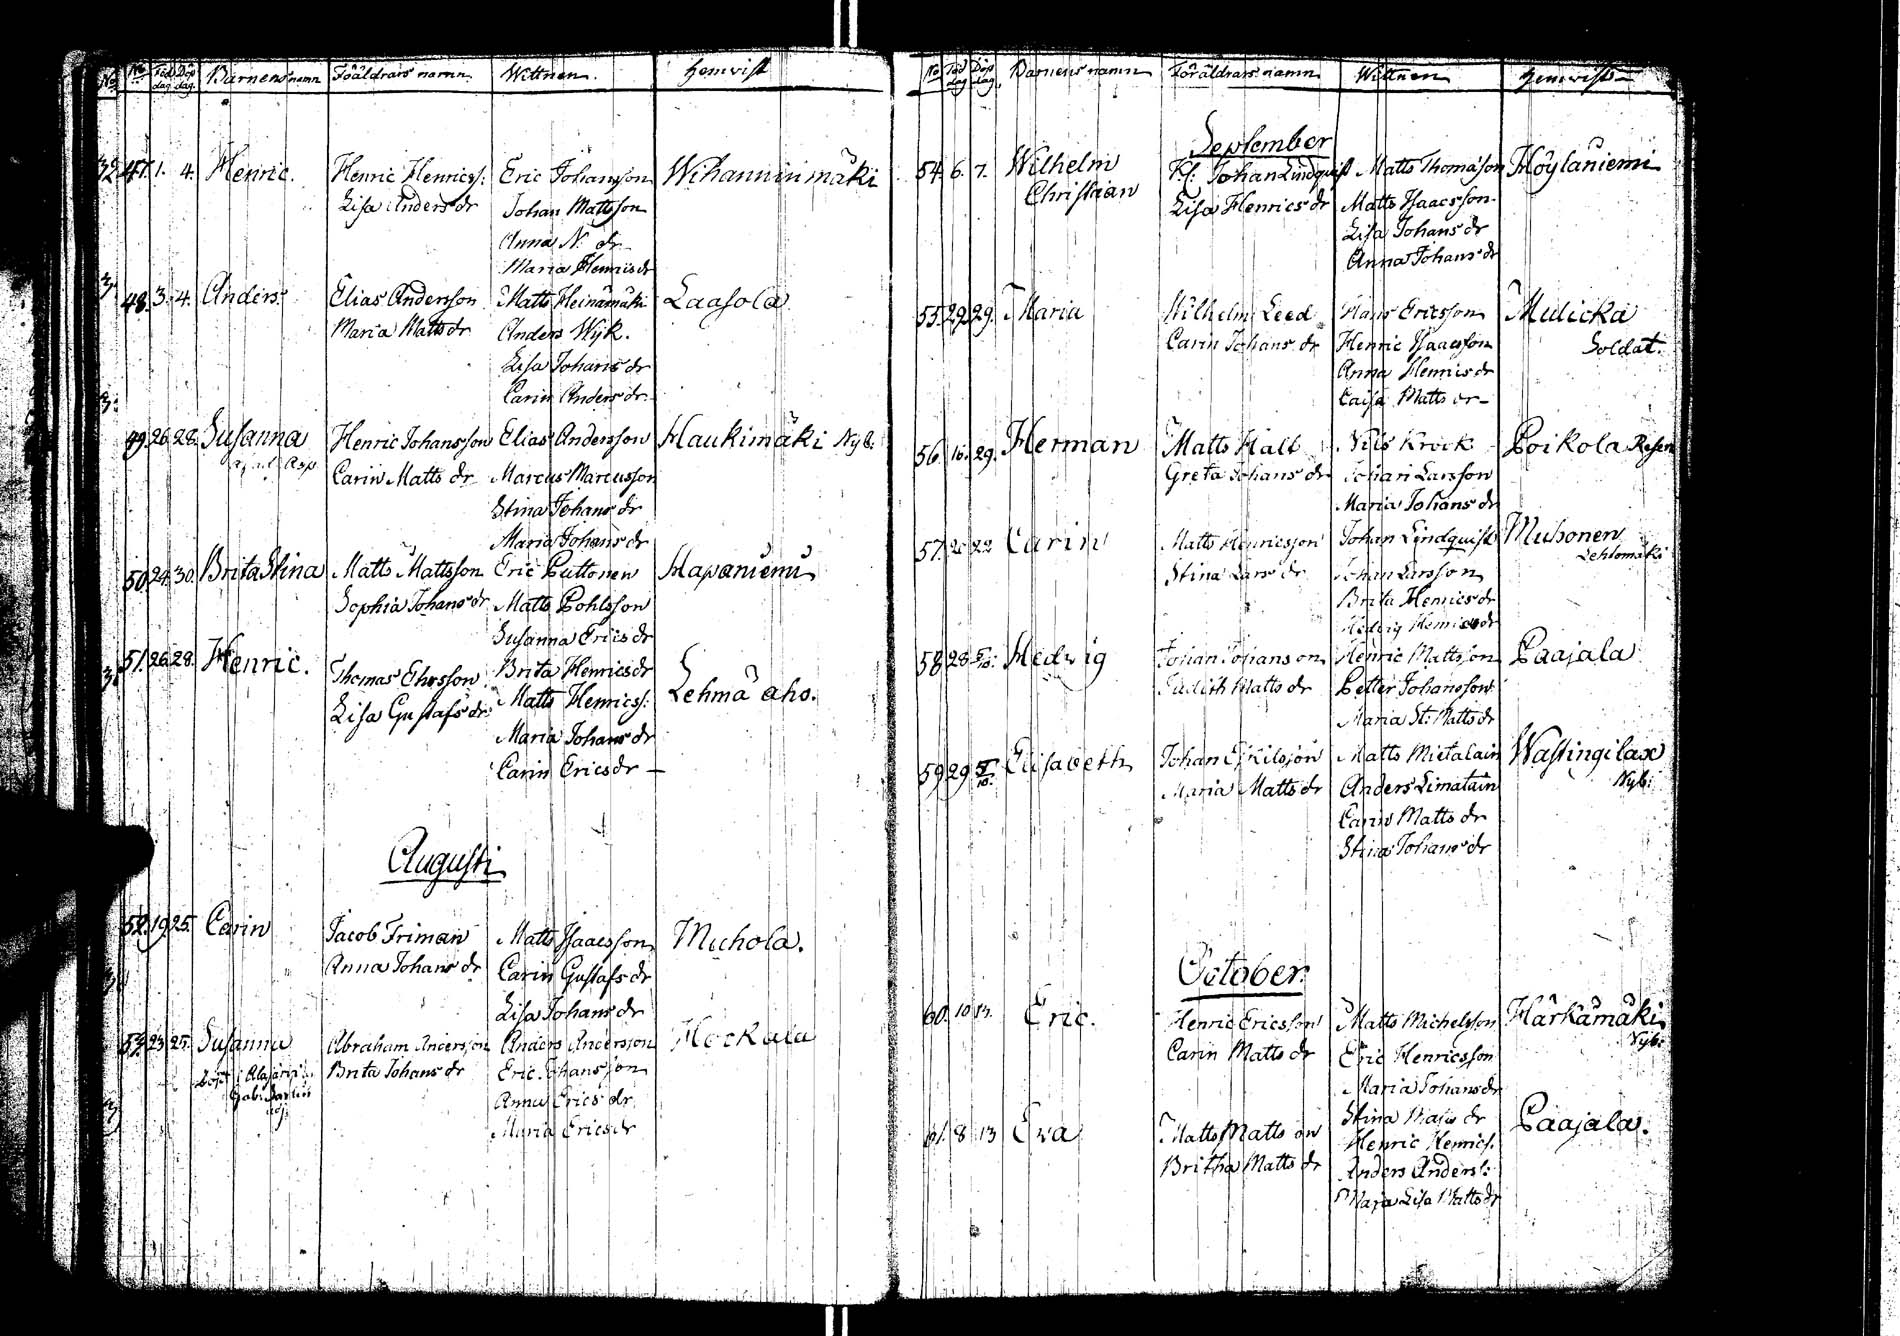 No Föd dag Döp dag. Barnens namn Föäldrars namn Wittnen. Hemvist
47. 1. 4. Henric. Henric Henricss: Eric Johansson Wihanninmäki
Lisa Anders dr Johan Mattsson
Anna N. dr
Maria Henrics dr
48. 3. 4. Anders. Elias Andersson Matts Heinämäki Laasola
Maria Matts dr Anders Wijk.
Lisa Johans dr
Carin Anders dr
49. 26. 28. Susanna Henric Johansson Elias Andersson Haukimäki Nyb:
Carin Matts dr Marcus Marcusson
Stina Johans dr
Maria Johans dr
50. 24. 30. Brita Stina Matts Mattsson Eric Puttonen Hapaniemi
Sophia Johans dr Matts Pohlsson
Susanna Erics dr
51. 26. 28. Henric. Thomas Brita Henrics dr
Lisa Gustafs dr Matts Henricss: Lehmä aho.
Maria Johans dr
Carin Erics dr
Augusti
52. 19. 25. Carin Jacob Friman Matts Isaacsson Muhola.
Anna Johans dr Carin Gustafs dr
Lisa Johans dr
53. 23. 25. Susanna Abraham Andersson Anders Andersson
Brita Johans dr Eric Johansson
Anna Erics dr
Maria Erics dr
No Föd dag Döp dag. Barnens namn Föräldrars namn Wittnen Hemvist
September
54. 6. 7. Wilhelm Johan Lindquist Matts Thomasson Höyläniemi
Christian Lisa Henrics dr Matts Isaacsson
Lisa Johans dr
Anna Johans dr
55. 29. 29. Maria Wilhelm Leed Hans Ericsson Mulicka
Carin Johans dr Henric Isaacsson Soldat.
Anna Henrics dr
Caisa Matts dr
56. 16. 29. Herman Matts Halt Nils Krock Poikola
Greta Johans dr Johan Larsson
Maria Johans dr
57. 22 Carin Matts Henricsson Johan Lindquist Muhonen
Stina Lars dr Johan Larsson Lehtomäki
Brita Henrics dr
Hedvig Henrics dr
58. 28. 5/10. Hedvig Johan Johansson Henric Mattsson Paajala
Judith Matts dr Petter Johansson
Maria St: Matts dr
59. 29. 5/10. Elisabeth Johan Eskilsson Matts Mietalain Wastingilax
Maria Matts dr Anders Limatain Nyb:
Carin Matts dr
Stina Johans dr
October.
60. 10 Eric. Henric Ericsson Matts Michelsson Härkämäki
Carin Matts dr Eric Henricsson Nyb:
Maria Johans dr
Stina Mats dr
61. 8. 13 Eva Matts Mattsson Henric Henrics. Paajala.
Britha Matts dr Anders Anders:
Maja Lisa Matts dr